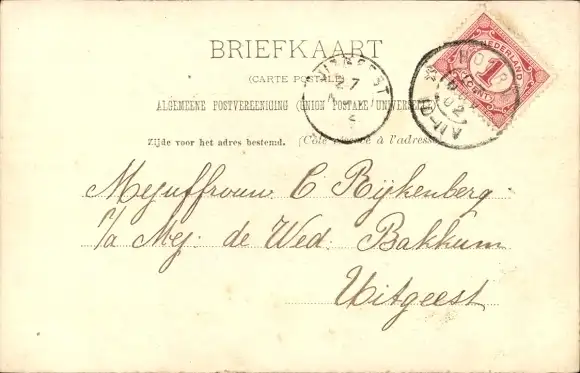 BRIEFKAART
(CARTE POSTALE)
ALGEMEENE POSTVEREENIGING (UNION POSTALE UNIVERSELLE)
Zijde voor het adres bestemd. (Côté réservé à l'adresse)
UITGEEST
27
NEDERLAND
1
CENT
02
Mejuffrouw C Rijkenberg
p/a Mej. de Wed. Bakkum
Uitgeest